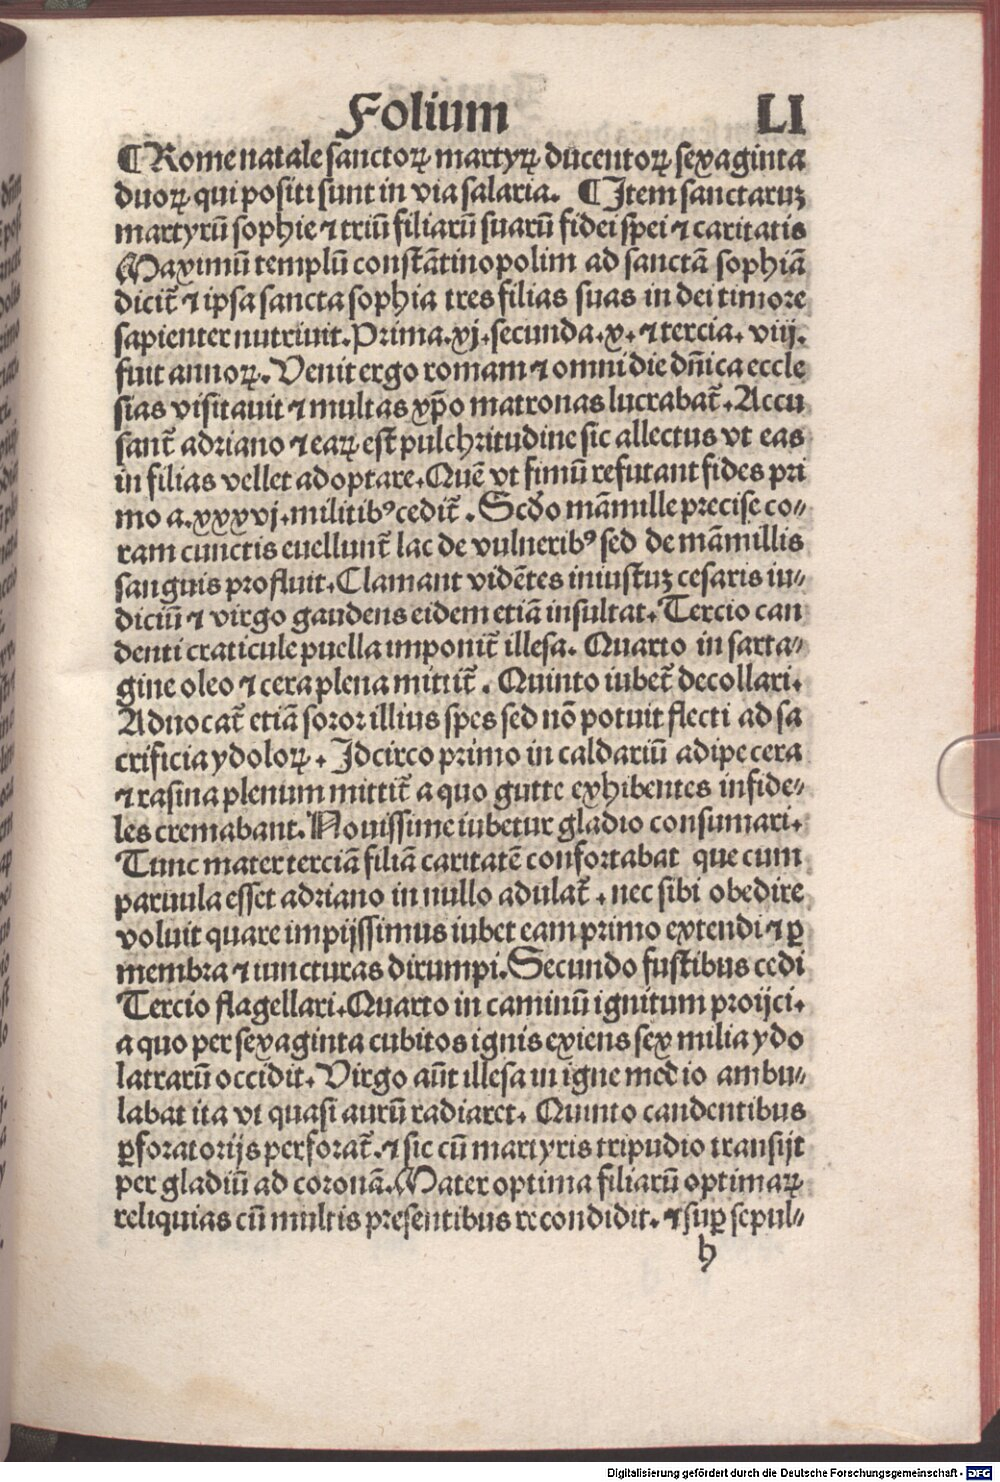 Folium LI
¶ Rome natale sanctoꝝ martyꝝ ducentoꝝ sexaginta
duoꝝ qui positi sunt in via salaria. ¶ Item sanctaruꝫ
martyrū sophie ⁊ triū filiarū suarū fidei spei ⁊ caritatis
Maximū templū constātinopolim ad sanctā sophiā
dicit̄ ⁊ ipsa sancta sophia tres filias suas in dei timore
sapienter nutriuit. Prima .xj. secunda .x. ⁊ tercia. viij.
fuit annoꝝ. Venit ergo romam ⁊ omni die dn̄ica eccle
sias visitauit ⁊ multas xp̄o matronas lucrabat̄. Accu
sant̄ adriano ⁊ eaꝝ est̄ pulchritudine sic allectus vt eas
in filias vellet adoptare. Quē vt fimū refutant fides pri
mo a .xxxvj. militibꝰ cedit̄. Scd̄o māmille precise co-
ram cunctis euellunt̄ lac de vulneribꝰ sed de māmillis
sanguis profluit. Clamant vidētes iniustuꝫ cesaris iu-
diciū ⁊ virgo gaudens eidem etiā insultat. Tercio can
denti craticule puella imponit̄ illesa. Quarto in sarta-
gine oleo ⁊ cera plena mittit̄. Quinto iubet̄ decollari.
Aduocat̄ etiā soror illius spes sed nō potuit flecti ad sa
crificia ydoloꝝ. Idcirco primo in caldariū adipe cera
⁊ rasina plenum mittit̄ a quo gutte exhibentes infide-
les cremabant. Nouissime iubetur gladio consumari.
Tunc mater terciā filiā caritatē confortabat que cum
paruula esset adriano in nullo adulat̄. nec sibi obedire
voluit quare impijssimus iubet eam primo extendi ⁊ ꝑ
membra ⁊ iuncturas dirumpi. Secundo fustibus cedi
Tercio flagellari. Quarto in caminū ignitum proijci.
a quo per sexaginta cubitos ignis exiens sex milia ydo
latrarū occidit. Virgo aūt illesa in igne medio ambu-
labat ita vt quasi aurū radiaret. Quinto candentibus
ꝑforatorijs perforat̄. ⁊ sic cū martyris tripudio transijt
per gladiū ad coronā. Mater optima filiarū optimaꝝ
reliquias cū multis presentibus recondidit. ⁊ suꝑ sepul-
h
Digitalisierung gefördert durch die Deutsche Forschungsgemeinschaft - DFG